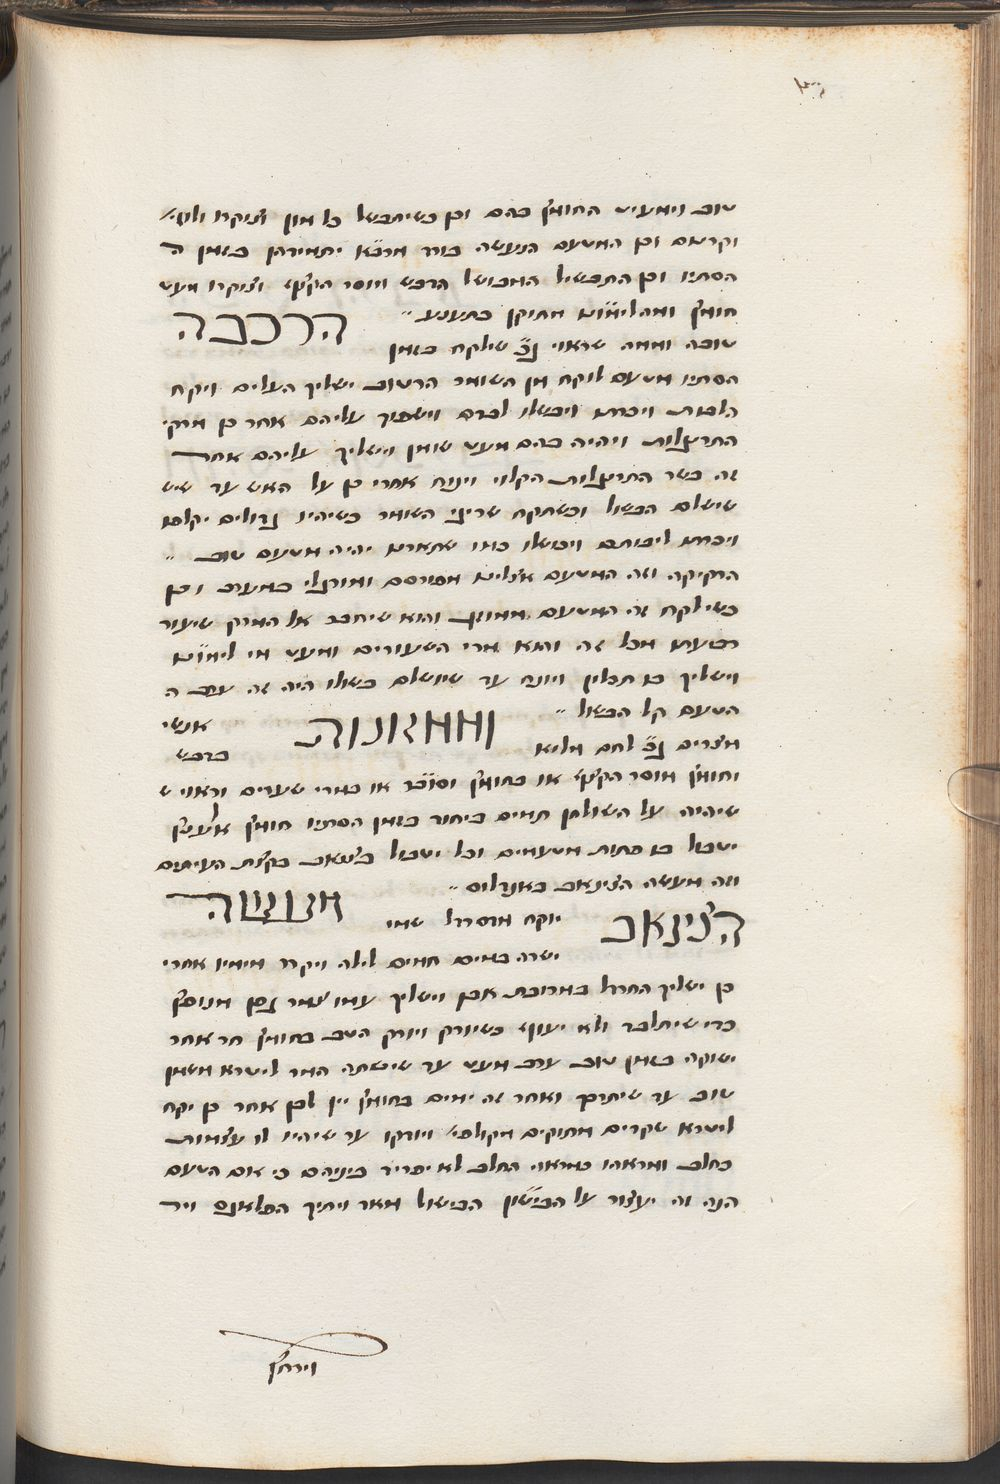 טוב וימעיט החומץ בהם וכן כשיתבשל כל מון וצוקרו
וקרטם וכן המטעם הנעשה יתמידהן בזמן ה
הסתיו וכן התבשיל המבושל הדבש ומוסר הקצף וצוקרו מעט
חומץ ומהלימוניש מתוקן כתענע
הרכבה
טובה וממה שראוי שילקח בזמן
הסתיו מטעם לוקח מן השומר הרטוב ישליך העלים ויקח
הלבות ויכרתו ויבשלו לבדם וישפוך עליהם אחר כן מרקי
התרנגולות ויהיה בהם מעט שומן וישליך עליהם אחר
זה בשר התרנגולות הקלוי ויניח אחרי כן על האש עד שיש
שישלם הבשול וכשתקח שרשי השומר כשיהיו גדולים יקלפו
ויכרתו ויבושלו כמו שתארנו יהיה מטעם טוב
הרקיקה וזה המטעם אצלינו מפורסם ומורגל במערב וכן
כשילקח זה המטעם ממוזג והוא שיחבר אל המרק שיעור
רביעית מכל זה והוא מרי השעורים ומעט מי לימוניש
וישליך בו תבלין ויונח עד שיושלם בשולו היה זה ערב ה
הטעם קל הבשול
וממאזנות
אנשי
מצרים לחם מלוא
בדבש
וחומץ מוסר הקצף או בחומץ וסוכר או במרי שעורים וראוי ש
שיהיה על השולחן תמיד ביחוד בזמן הסתיו חומץ
יטבול בו פתות מטעמים וכל יטבול בצנאב בקצת העיתים
וזה מעשה הצינאב באנדלוס
מעשה
הצינאב
יוקח חרדל שמו
ישרה במים חמים לילה ויקרר מימיו אחרי
כן ישליך החרדל במדוכת אבן וישליך עמו צמר גפן מנופץ
כדי שיתלבד ולא יעוף כשיודק ויודק הטב בחומץ חד אחר
ישוקה בשמן טוב ערב מעט עד שישתה המר ליטרא משמן
טוב עד שיתרכך ואחר זה ימים בחומץ יין לבן אחר כן יקח
ליטרא שקדים מתוקים מקולפים וידוקו עד שיהיו לו עצמות
כחלב ומראהו כמראה החלב לא יפריד ביניהם כי אם הטעם
הנה זה יעצור על הבישון הבישול מאד ויתיך הפלאגם ויר
וירחץ